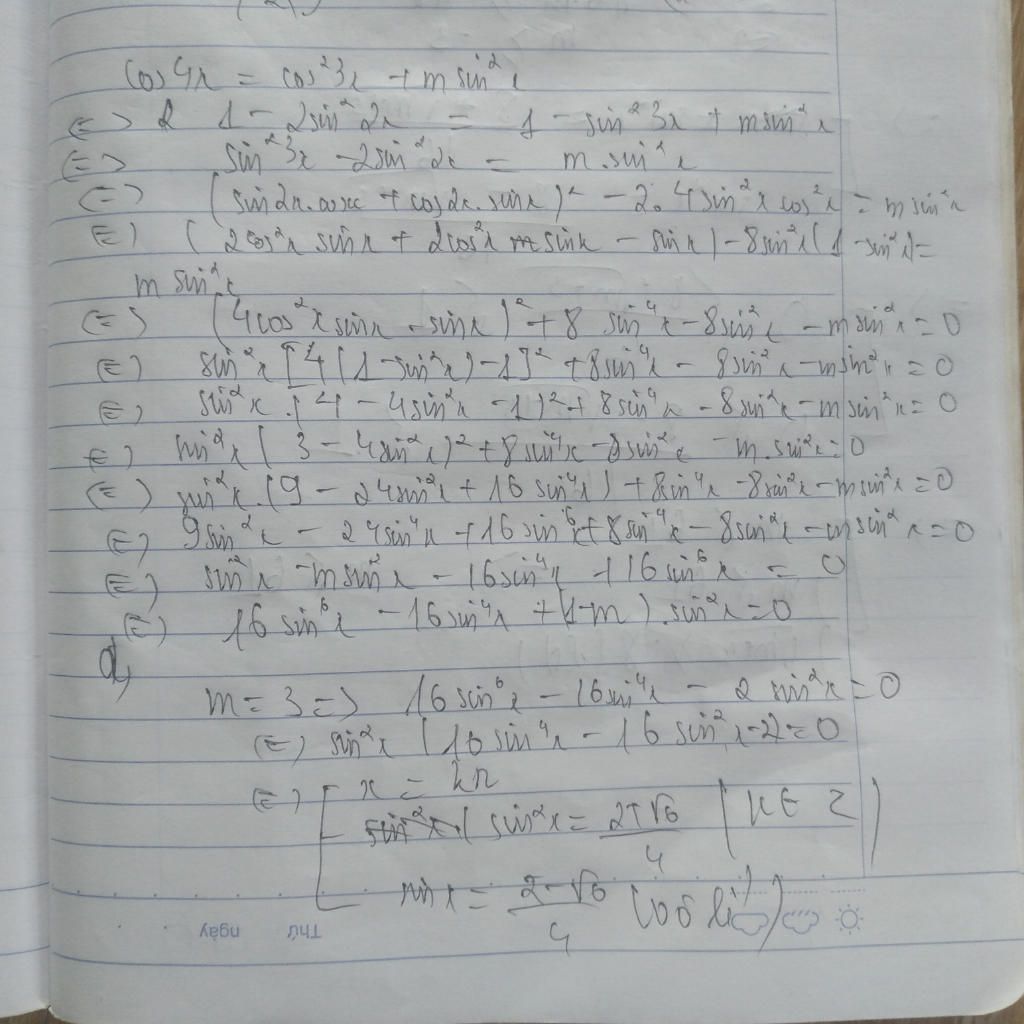 cos 4x = cos²3x + m sin²x
<=> 2 1 - 2sin²2x = 1 - sin²3x + m sin²x
<=> sin²3x - 2sin²2x = m.sin²x
<=> (sin2x.cosx + cos2x.sinx)² - 2.4sin²x cos²x = m sin²x
<=> (2cos²x sinx + 2cos²x sinx - sinx) - 8sin²x(1 - sin²x) =
m sin²x
<=> (4cos²x sinx - sinx)² + 8 sin⁴x - 8sin²x - m sin²x = 0
<=> sin²x [4(1 - sin²x) - 1]² + 8sin⁴x - 8sin²x - m sin²x = 0
<=> sin²x.(4 - 4sin²x - 1)² + 8sin⁴x - 8sin²x - m sin²x = 0
<=> sin²x (3 - 4sin²x)² + 8sin⁴x - 8sin²x - m.sin²x = 0
<=> sin²x.(9 - 24sin²x + 16 sin⁴x) + 8sin⁴x - 8sin²x - m sin²x = 0
<=> 9sin²x - 24sin⁴x + 16 sin⁶x + 8sin⁴x - 8sin²x - m sin²x = 0
<=> sin²x - m sin²x - 16sin⁴x + 16sin⁶x = 0
<=> 16 sin⁶x - 16sin⁴x + (1-m).sin²x = 0
a,
m = 3 => 16 sin⁶x - 16sin⁴x - 2 sin²x = 0
<=> sin²x (16 sin⁴x - 16 sin²x - 2) = 0
<=> [ x = kπ
sin²x = 2+√6/4 (k ∈ Z)
sin x = 2-√6/4 (loại)
Thứ ngày